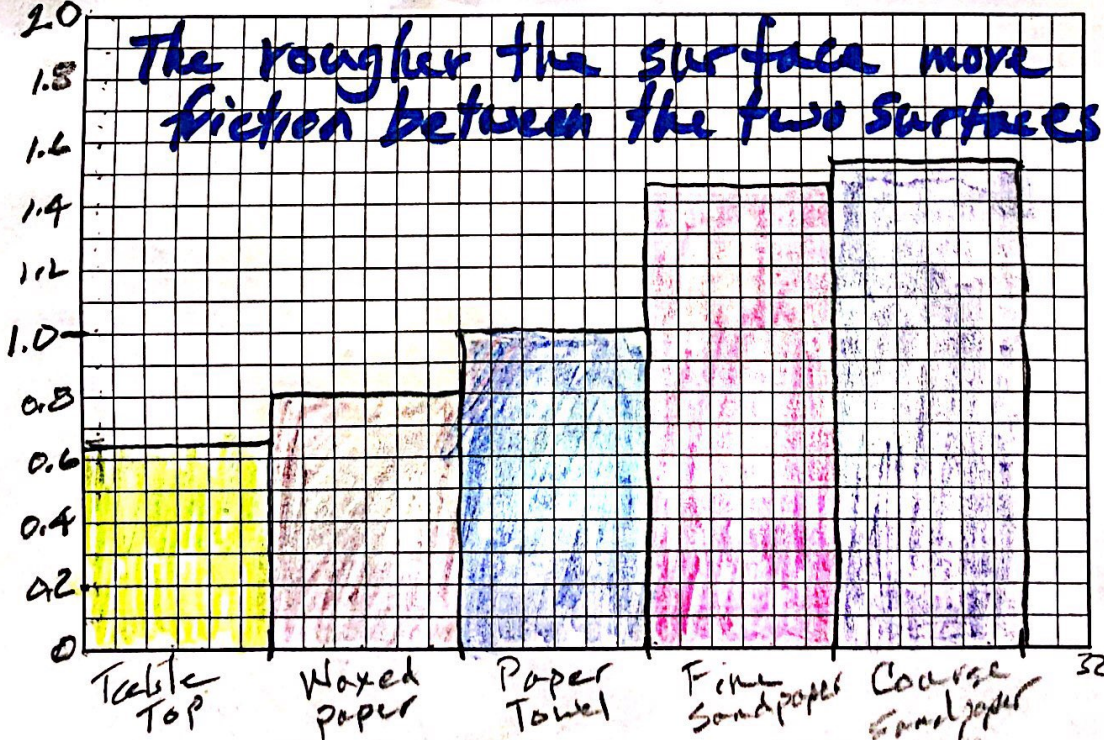 The rougher the surface more
friction between the two surfaces
2.0
1.8
1.6
1.4
1.2
1.0
0.8
0.6
0.4
0.2
0
Table
Top
Waxed
paper
Paper
Towel
Fine
Sandpaper
Coarse
Sandpaper
32